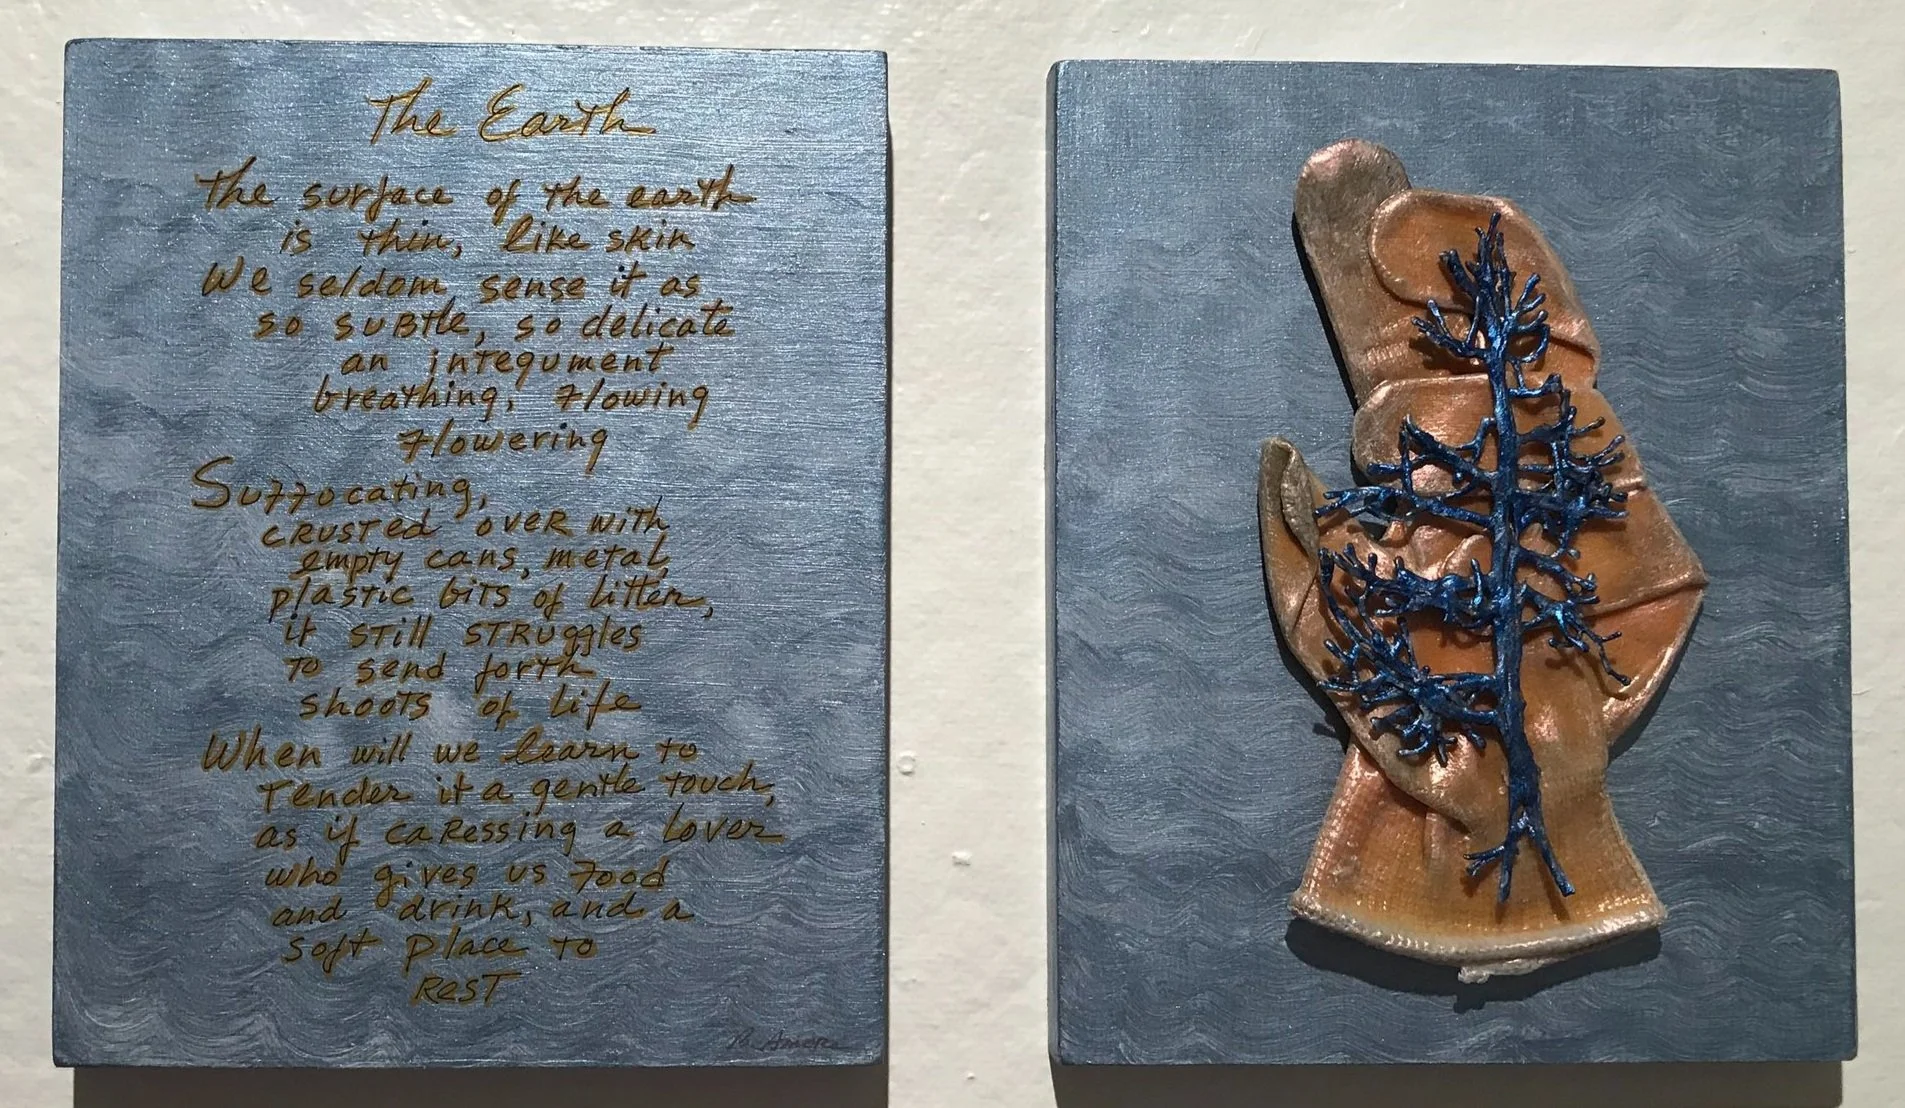 The Earth
The surface of the earth
is thin, like skin
We seldom sense it as
so suBtle, so delicate
an integument
breathing, flowing
flowering
Suffocating,
CRUSTED OVER with
empty cans, metal,
plastic bits of litter,
it still STRUggles
to send forth
shoots of life
When will we learn to
Tender it a gentle touch,
as if caRessing a lover
who gives us food
and drink, and a
soft place to
REST
B. Amore